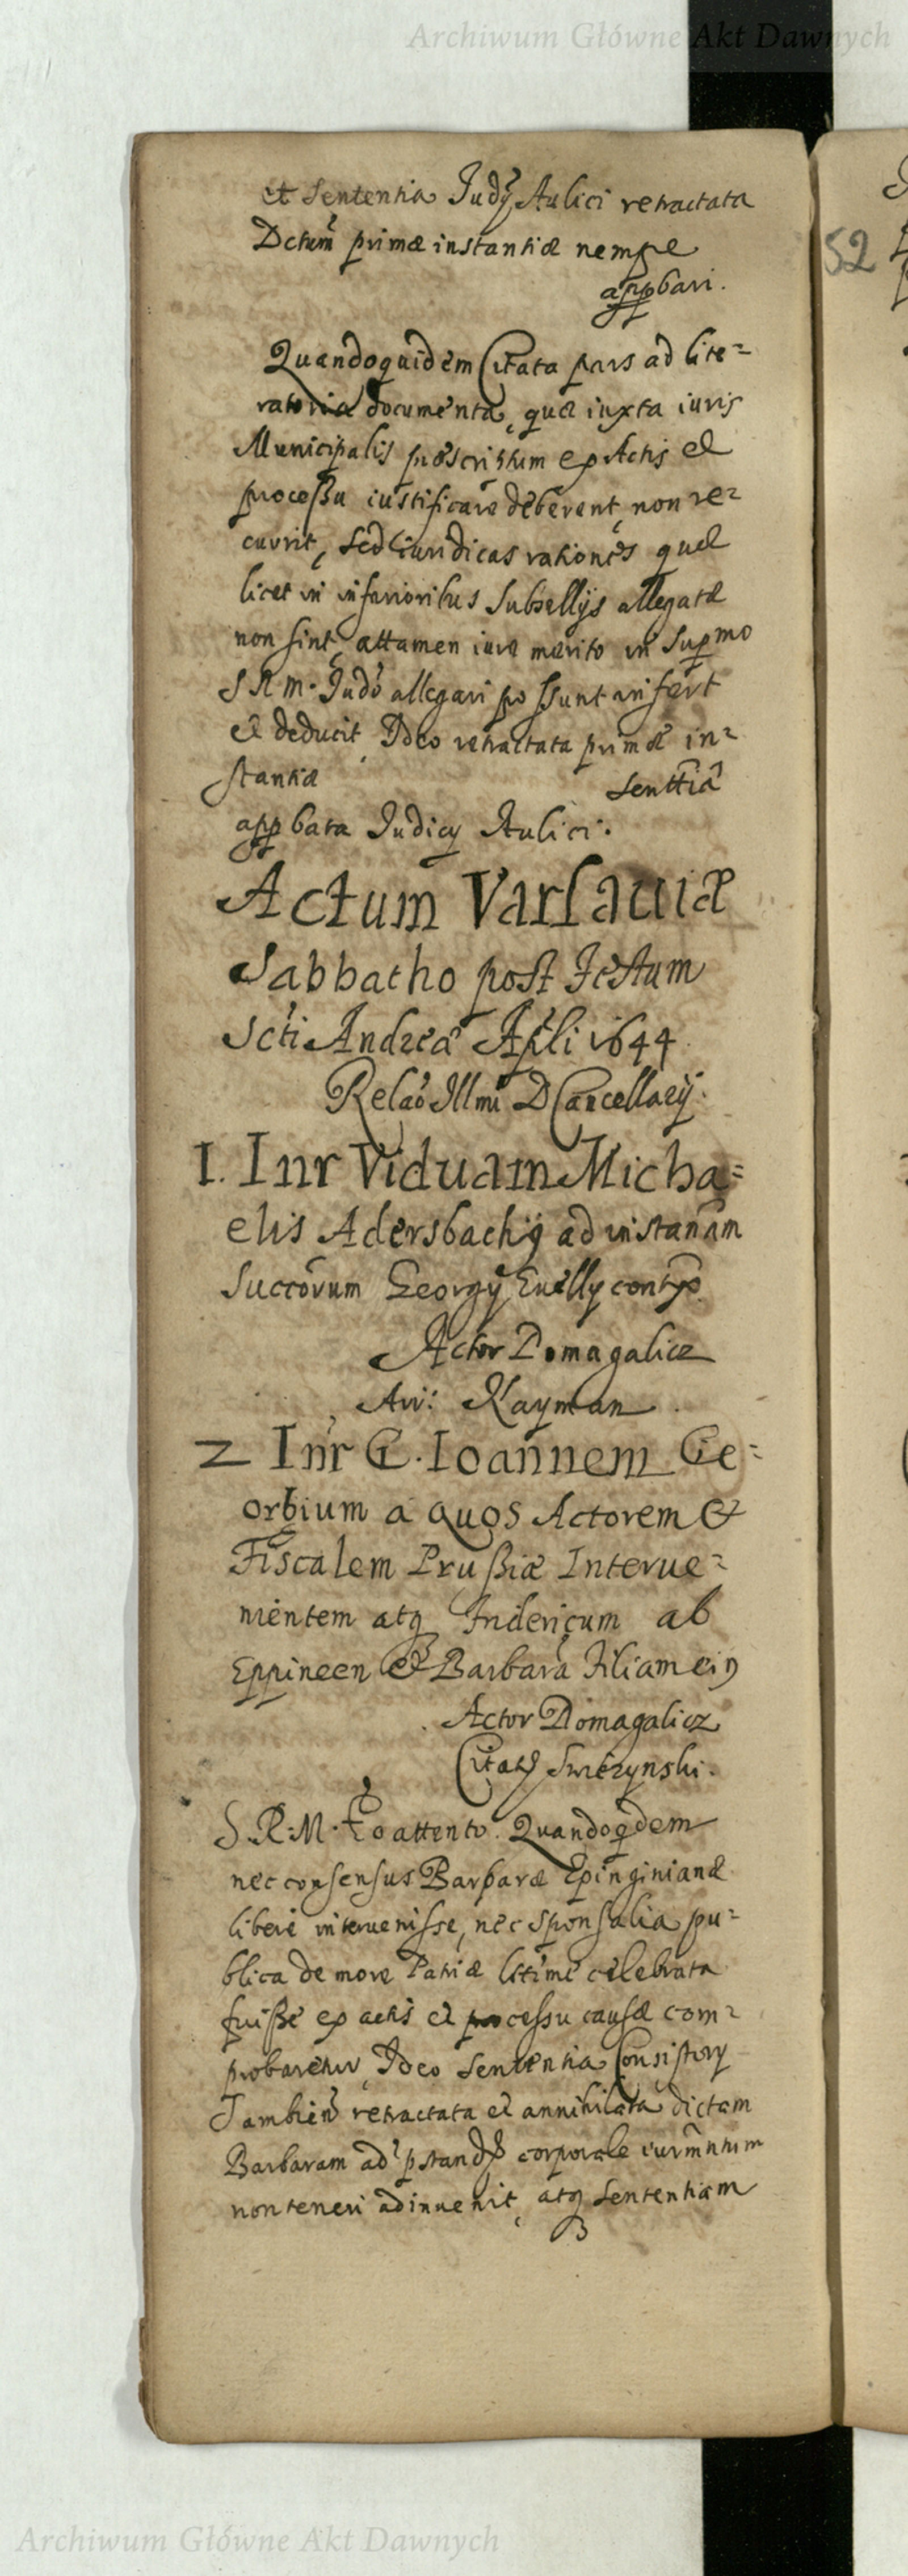 Archiwum Główne Akt Dawnych
et Sententia Judÿ Aulici retractata
Dctum primæ instantiæ nempe
appbari.
52
Quandoquidem Citata pars ad lite=
ratoria documenta, quæ iuxta iuris
Municipalis præscriptum ex Actis et
processu iustificare deberent, non re=
currit, sed iuridicas rationes quæ
licet in inferioribus Subsellijs allegatæ
non sint, attamen iure merito in Supmo
S R M. Judo allegari possunt infert
et deducit, Ideo retractata primæ in=
stantiæ senttia
appbata Judicij Aulici.
Actum Varsauiæ
Sabbatho post Festum
Scti Andreæ Apli 1644
Relao Illmi D Cancellarij.
1. Inr Viduam Micha=
elis Adersbachij ad instanam
Succorum Georgij contx
Actor Domagalicz
Kayman
2 Inr G. Ioannem Ge=
orbium a quos Actorem &
Fiscalem Prussiæ Interue=
nientem atq Fridericum ab
Eppineen et Barbara Filiam eiq
Actor Domagalicz
Citatq
S. R. M. eo attento. Quandoqdem
nec consensus Barbaræ Epinginianæ
libere interuenisse, nec sponsalia pu=
blica de more Patriæ litime celebrata
fuisse ex actis et processu causæ com=
probaretur, Ideo Sententia Consistory
Sambien retractata et annihilata dictam
Barbaram ad pstandx corporale iurmntum
non teneri adinuenit, atq Sententiam
Archiwum Główne Akt Dawnych